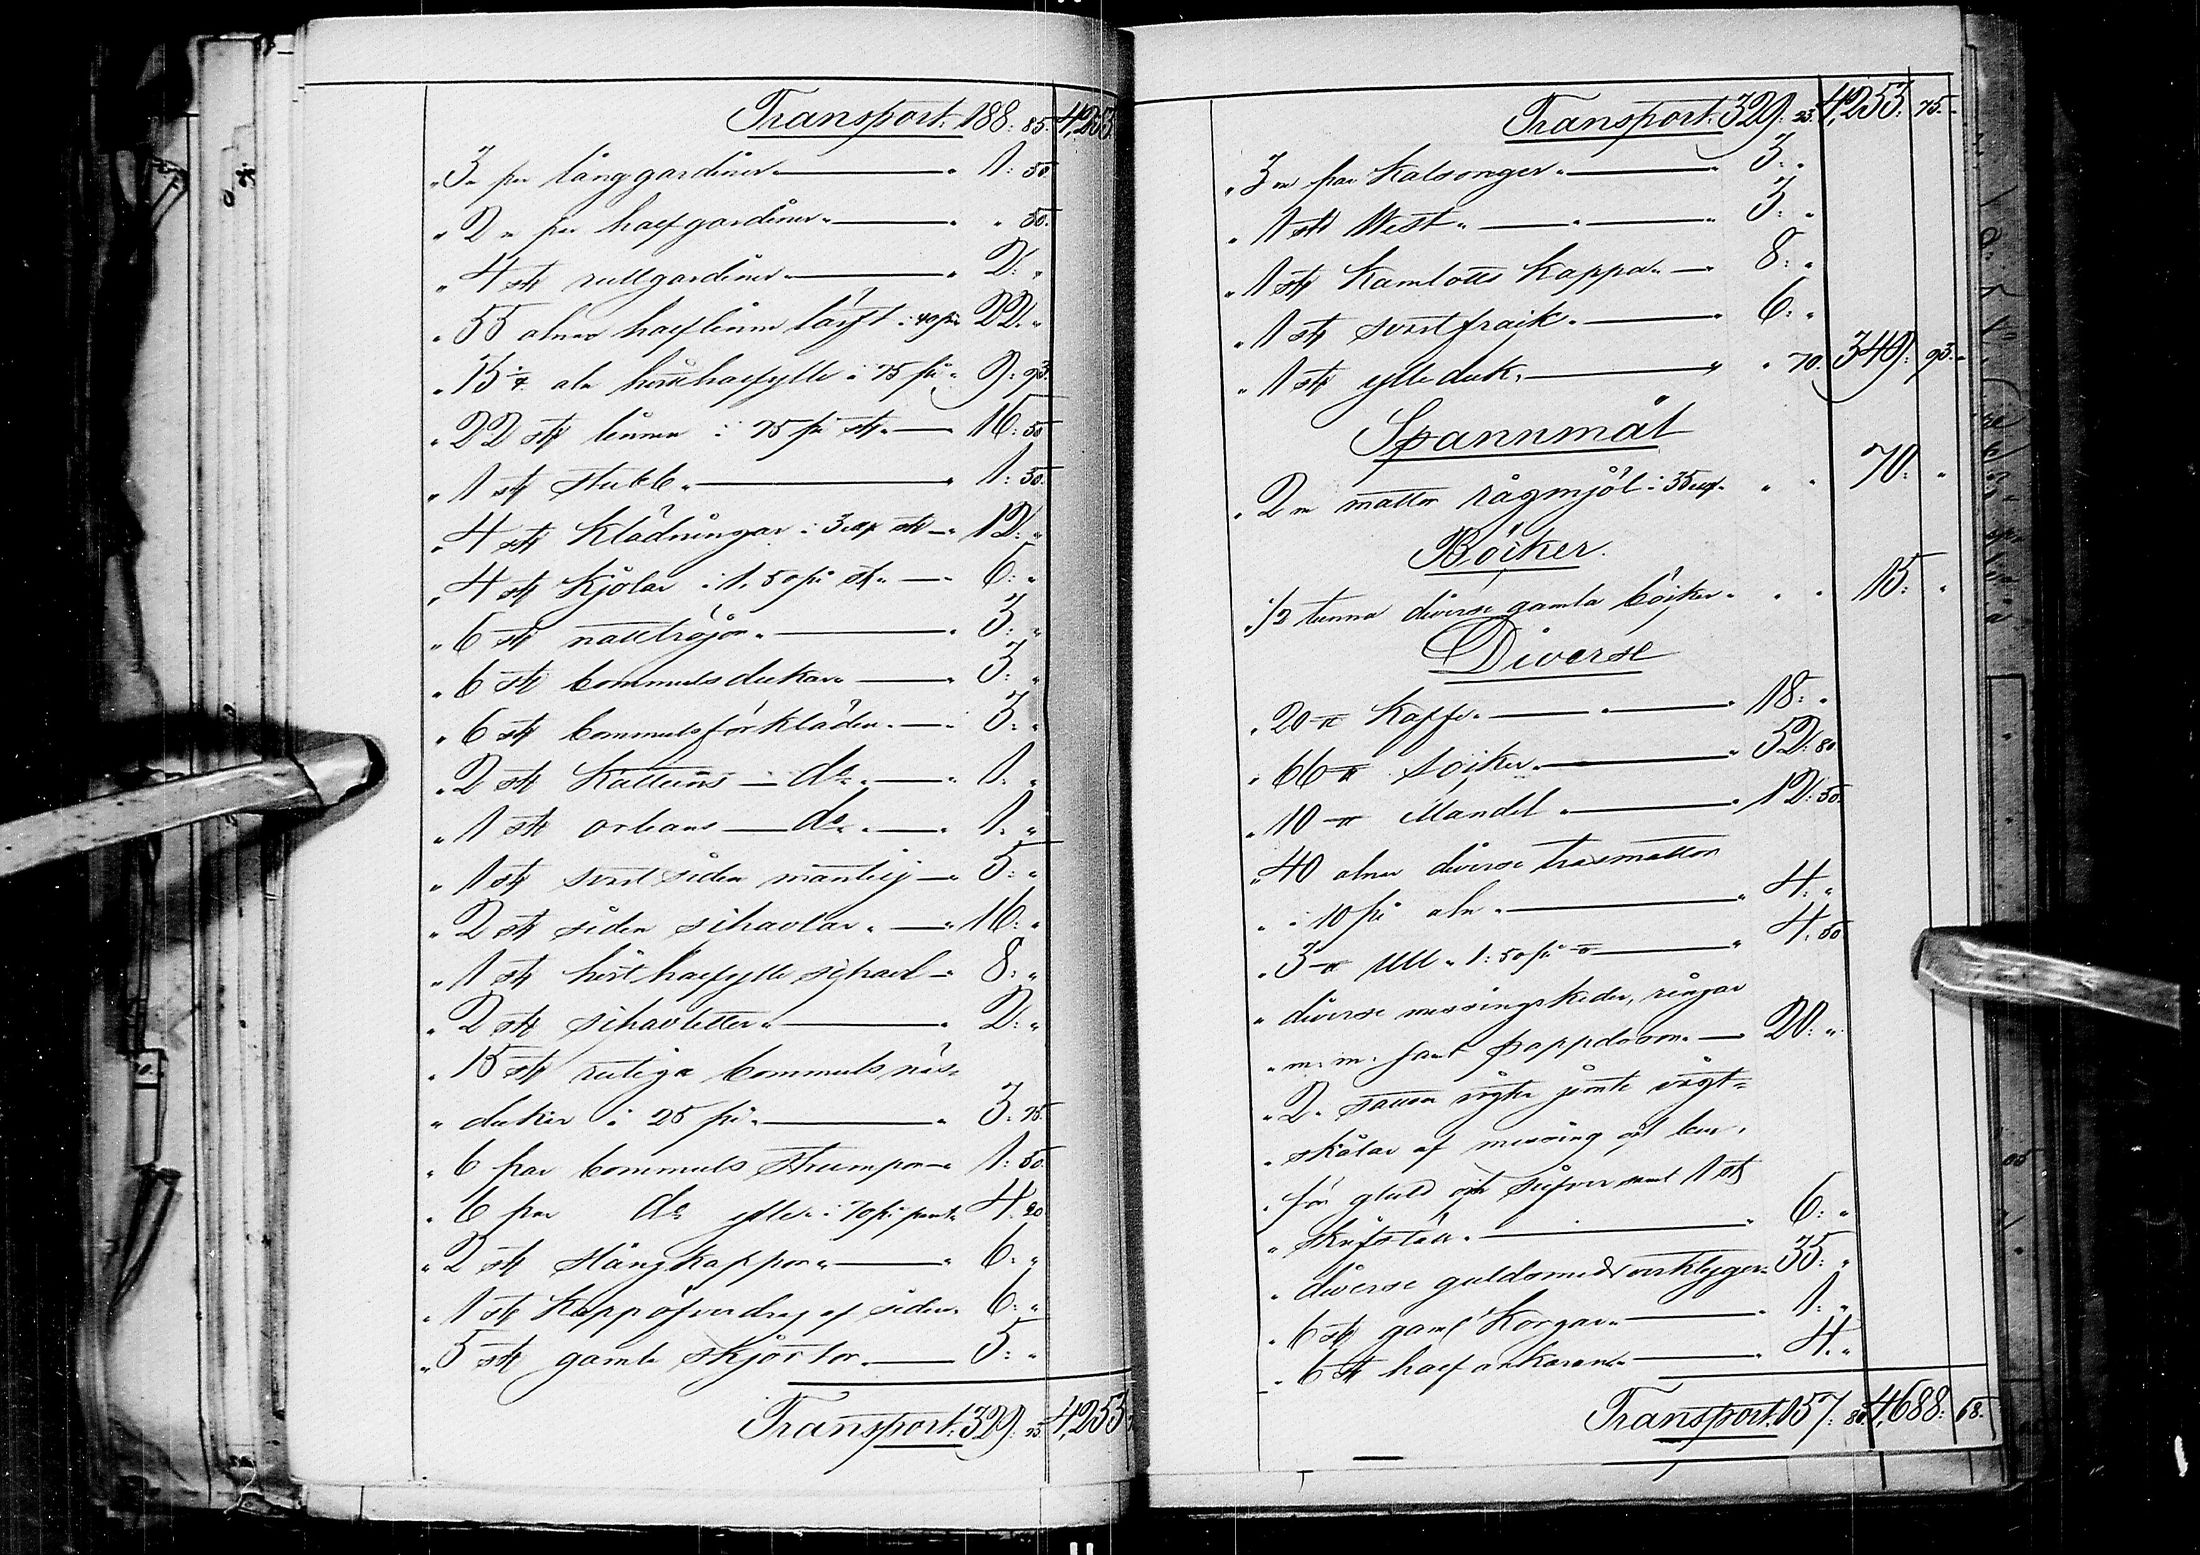 Transport. 188: 85. 4,255
„ 3 „ par långgardiner „ — „ 1: 50
„ 2 „ par halfgardiner „ — „ „ 50.
„ 4 st rullgardiner „ — „ 2: „
„ 55 alnar halflinne lärft i 40 öre 22. „
„ 13 1/4 aln halfylle i 75 öre „ 9: 93.
„ 22 st linnen i 75 öre st „ — 16: 50
„ 1 st stubb „ — „ 1: 50.
„ 4 st Klädningar i 3 st — „ 12: „
„ 4 st Kjolar i 1. 50 öre st „ — „ 6: „
„ 6 st nattröjor „ — „ 3: „
„ 6 st bommulsdukar „ — „ 3: „
„ 6 st bommulsförkläden „ — „ 3: „
„ 2 st Kattuns — do „ — „ 1: „
„ 1 st orleans — do „ — „ 1: „
„ 1 st svart siden mantilj — „ 5: „
„ 2 st siden schavlar „ — „ 16: „
„ 1 st halfylle schavl — „ 8: „
„ 2 st schavletter „ — „ 2: „
„ 15 st rutiga bommuls näs-
„ dukar i 25 öre „ — „ 3: 75.
„ 6 par bommuls strumpor — „ 1: 50
„ 6 par do ylle „ i 70 öre paret 4. 20
„ 2 st slängkappor „ — „ 6: „
„ 1 st Kappöfverdrag af siden „ 6: „
„ 5 st gamla skjortor „ — 5: „
Transport. 329: 25. 4,255
Transport. 329: 25. 4,255: 75. „
„ 3 „ par Kalsonger „ — „ 3: „
„ 1 st West „ — „ — „ 3: „
„ 1 st Kamlotts Kappa „ — „ 8: „
„ 1 st svart frack „ — „ 6: „
„ 1 st ylleduk „ — „ „ 70. 349: 93. „
Spannmål
„ 2 „ mattor rågmjöl i 35 „ „ „ 70: „
Böcker.
„ 1/2 tunna diverse gamla böcker „ „ „ 15: „
Diverse
„ 20 Kaffe „ — „ — „ 18: „
„ 66 socker „ — „ 52: 80
„ 10 Mandel „ — „ 12: 50
„ 40 alnar diverse trasmattor
„ „ i 10 öre aln „ — „ 4: „
„ 3 Ull „ 1: 50 öre — „ 4. 50
„ diverse messingskedor, ringar
„ m. m. samt pappdosor „ — 20: „
„ 2 „ vigter jemte vigt-
„ skålar af messing och ben „
„ för guld och silfver samt 1 st
„ „ — „ 6: „
„ diverse guldsmedsverktyger „ 35: „
„ 6 st gaml Korgar „ — „ 1: „
„ 6 st halfankaren „ — „ 4. „
Transport. 157: 80. 4,688: 68.